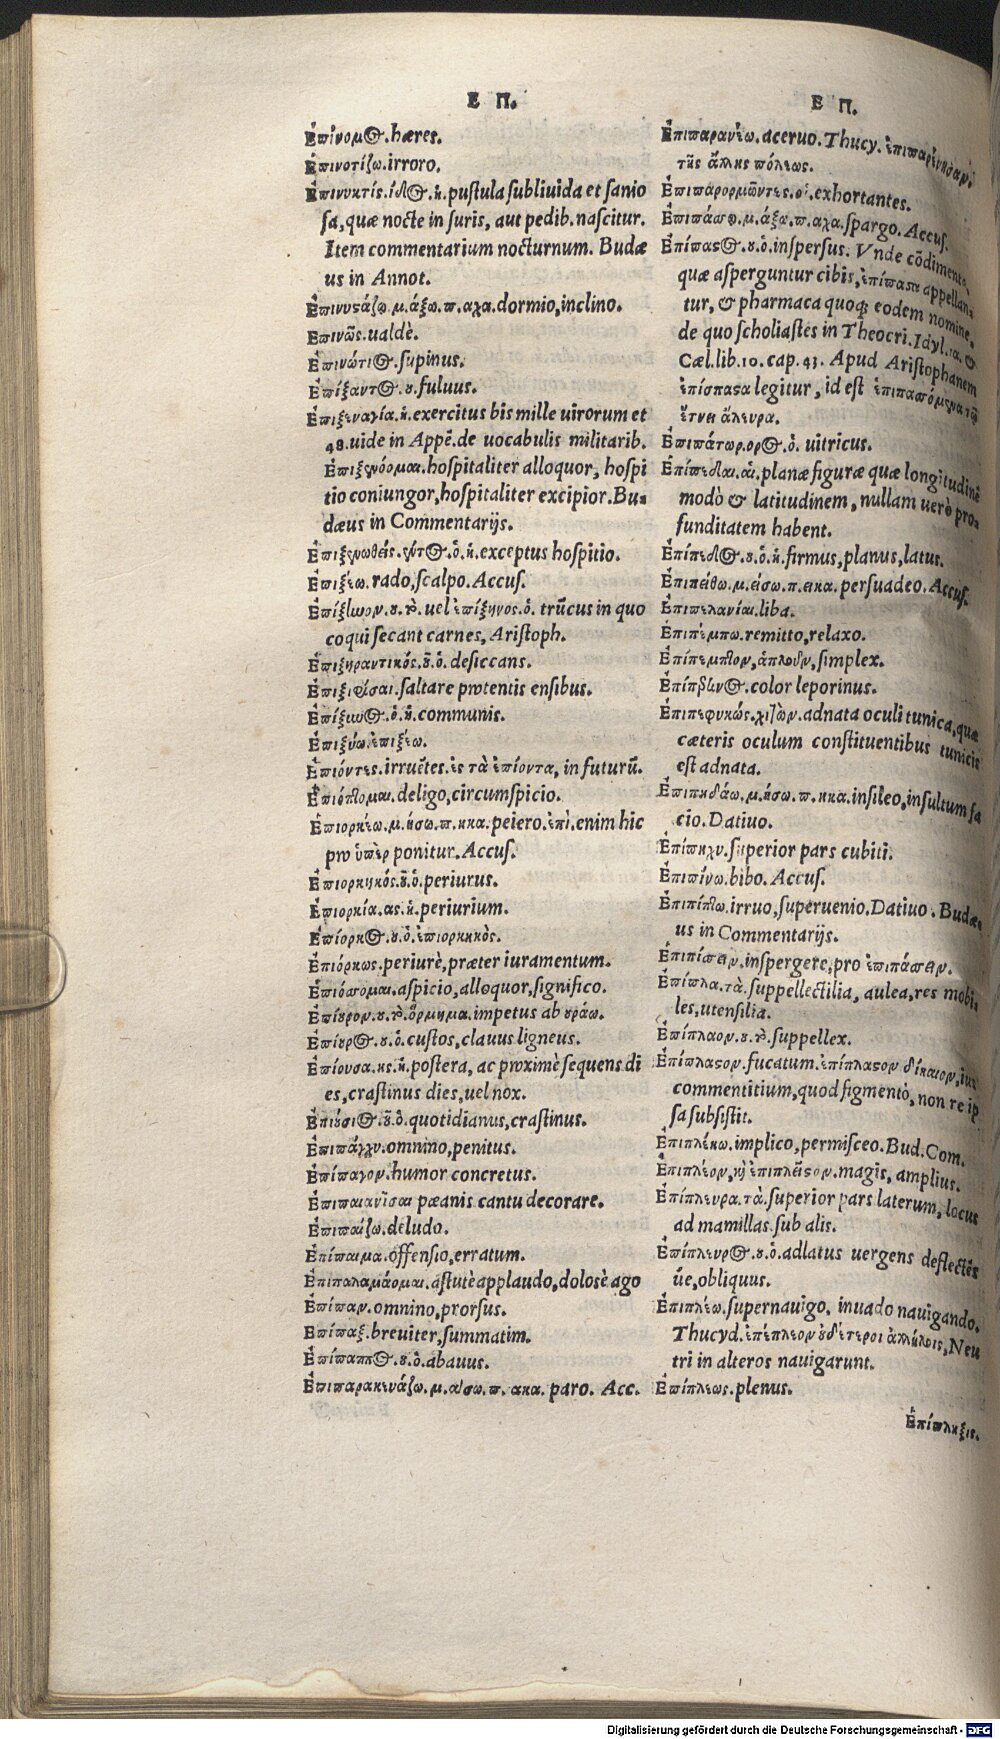 Ε Π.
Ἐπίνομος. hæres.
Ἐπινοτίζω. irroro.
Ἐπινυκτίς. ίδος. ἡ. pustula subliuida et sanio
sa, quæ nocte in suris, aut pedib. nascitur.
Item commentarium nocturnum. Budæ
us in Annot.
Ἐπινυστάζω. μ. άξω. π. αχα. dormio, inclino.
Ἐπινῶς. ualdè.
Ἐπινώτιος. supinus.
Ἐπίξανθος. ου. fuluus.
Ἐπιξεναγία. ἡ. exercitus bis mille uirorum et
48. uide in Appẽ. de uocabulis militarib.
Ἐπιξενόομαι. hospitaliter alloquor, hospi
tio coniungor, hospitaliter excipior. Bu-
dæus in Commentarijs.
Ἐπιξενωθείς. έντος. ὁ. ἡ. exceptus hospitio.
Ἐπιξέω. rado, scalpo. Accus.
Ἐπίξηνον. ου. τὸ. uel ἐπίξηνος. ὁ. trũcus in quo
coqui secant carnes, Aristoph.
Ἐπιξηραντικός. οῦ. ὁ. desiccans.
Ἐπιξιφίσαι. saltare protentis ensibus.
Ἐπίξυνος. ὁ. ἡ. communis.
Ἐπιξύω. ἐπιξέω.
Ἐπιόντες. irruẽtes. ἐς τὰ ἐπίοντα, in futurũ.
Ἐπιόπτομαι. deligo, circumspicio.
Ἐπιορκέω. μ. ήσω. π. ηκα. peiero. ἐπὶ. enim hic
pro ὑπὲρ ponitur. Accus.
Ἐπιορκηκός. οῦ. ὁ. periurus.
Ἐπιορκία. ας. ἡ. periurium.
Ἐπίορκος. ου. ὁ. ἐπιορκηκὸς.
Ἐπιόρκως. periurè, præter iuramentum.
Ἐπιόσσομαι. aspicio, alloquor, significo.
Ἐπίουρον. ου. τὸ. ὅρμημα. impetus ab ουράω.
Ἐπίουρος. ου. ὁ. custos, clauus ligneus.
Ἐπίουσα. ης. ἡ. postera, ac proximè sequens di
es, crastinus dies, uel nox.
Ἐπιούσιος. ου. ὁ. quotidianus, crastinus.
Ἐπιπάγχυ. omnino, penitus.
Ἐπίπαγον. humor concretus.
Ἐπιπαιανῖσαι pæanis cantu decorare.
Ἐπιπαίζω. deludo.
Ἐπίπαισμα. offensio, erratum.
Ἐπιπαλαμάομαι. astutè applaudo, dolosè ago
Ἐπίπαν. omnino, prorsus.
Ἐπίπαξ. breuiter, summatim.
Ἐπίπαππος. ου. ὁ. abauus.
Ἐπιπαρασκευάζω. μ. άσω. π. ακα. paro. Acc.
Ε Π.
Ἐπιπαρανέω. aceruo. Thucy. ἐπιπαρένησαν.
τῆς ἄλλης πόλεως.
Ἐπιπαρορμῶντες. οἱ. exhortantes.
Ἐπιπάσσω. μ. άξω. π. αχα. spargo. Accus.
Ἐπίπαστος. ου. ὁ. inspersus. Vnde cõdimenta,
quæ asperguntur cibis, ἐπίπαστα appellan-
tur, & pharmaca quoq; eodem nomine,
de quo scholiastes in Theocri. Idyl. ια. &
Cæl. lib. 10. cap. 43. Apud Aristophanem
ἐπίσπαστα legitur, id est ἐπιπασσόμενα τῷ
ἔτνει ἄλευρα.
Ἐπιπάτωρ. ορος. ὁ. uitricus.
Ἐπίπεδαι. αἱ. planæ figuræ quæ longitudinẽ
modò & latitudinem, nullam uerò pro-
funditatem habent.
Ἐπίπεδος. ου. ὁ. ἡ. firmus, planus, latus.
Ἐπιπείθω. μ. είσω. π. εικα. persuadeo. Accus.
Ἐπιπελανίαι. liba.
Ἐπιπέμπω. remitto, relaxo.
Ἐπίπεμπτον, ἁπλοῦν, simplex.
color leporinus.
Ἐπιπεφυκώς. χιτὼν. adnata oculi tunica, quæ
cæteris oculum constituentibus tunicis
est adnata.
Ἐπιπηδάω. μ. ήσω. π. ηκα. insileo, insultum fa
cio. Datiuo.
Ἐπίπηχυ. superior pars cubiti.
Ἐπιπίνω. bibo. Accus.
Ἐπιπίπτω. irruo, superuenio. Datiuo. Budæ-
us in Commentarijs.
Ἐπιπίσσειν. inspergere, pro ἐπιπάσσειν.
Ἐπίπλα. τὰ. suppellectilia, aulea, res mobi-
les, utensilia.
Ἐπίπλαον. ου. τὸ. suppellex.
Ἐπίπλαστον. fucatum. ἐπίπλαστον δίκαιον, ius
commentitium, quod figmento, non re ip
sa subsistit.
Ἐπιπλέκω. implico, permisceo. Bud. Com.
Ἐπιπλέον, καὶ ἐπιπλεῖστον. magis, amplius.
Ἐπίπλευρα. τὰ. superior pars laterum, locus
ad mamillas sub alis.
Ἐπίπλευρος. ου. ὁ. adlatus uergens deflectẽs
ũe, obliquus.
Ἐπιπλέω. supernauigo, inuado nauigando.
Thucyd. ἐπέπλεον οὐδέτεροι ἀλλήλοις, Neu
tri in alteros nauigarunt.
Ἐπίπλεως. plenus.
Ἐπίπληξις.
Digitalisierung gefördert durch die Deutsche Forschungsgemeinschaft - DFG